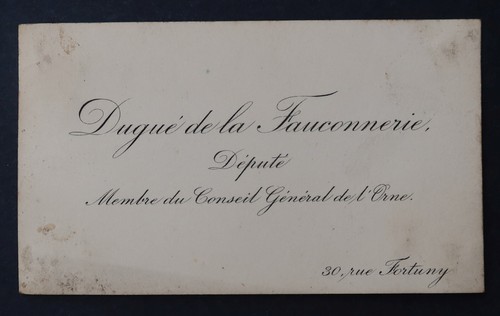 Dugué de la Fauconnerie.
Député
Membre du Conseil Général de l'Orne.
30, rue Fortuny